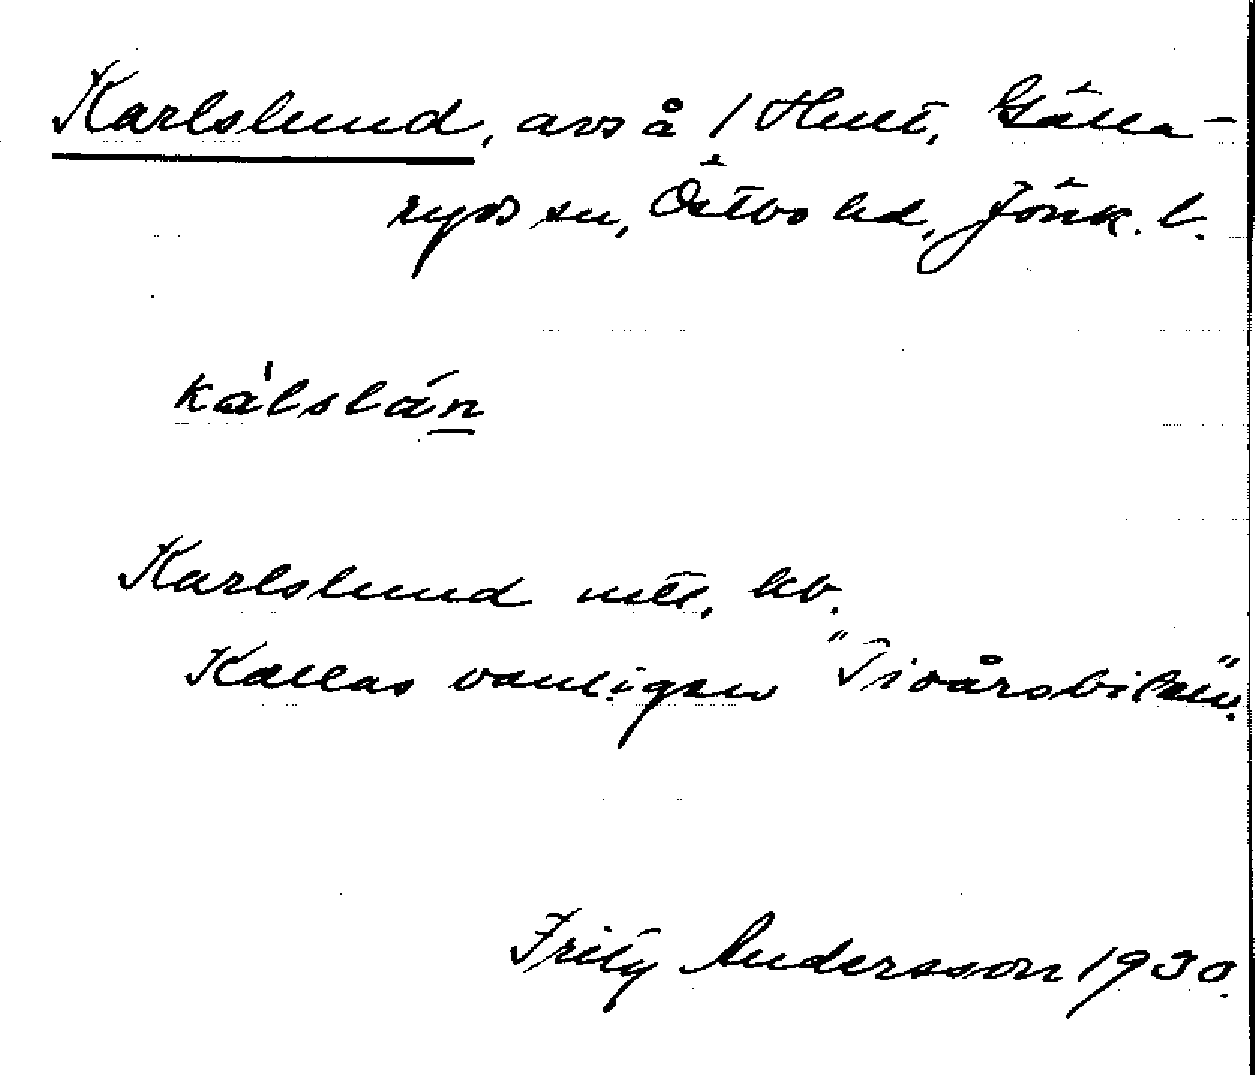 Karlslund, avs å 1 Hult, Gälla-
ryds sn, Östbo hd, Jönk. l.
kålslán
Karlslund uttl. kv.
Kallas vanligen "Tivårsbilen".
Fritz Andersson 1930.